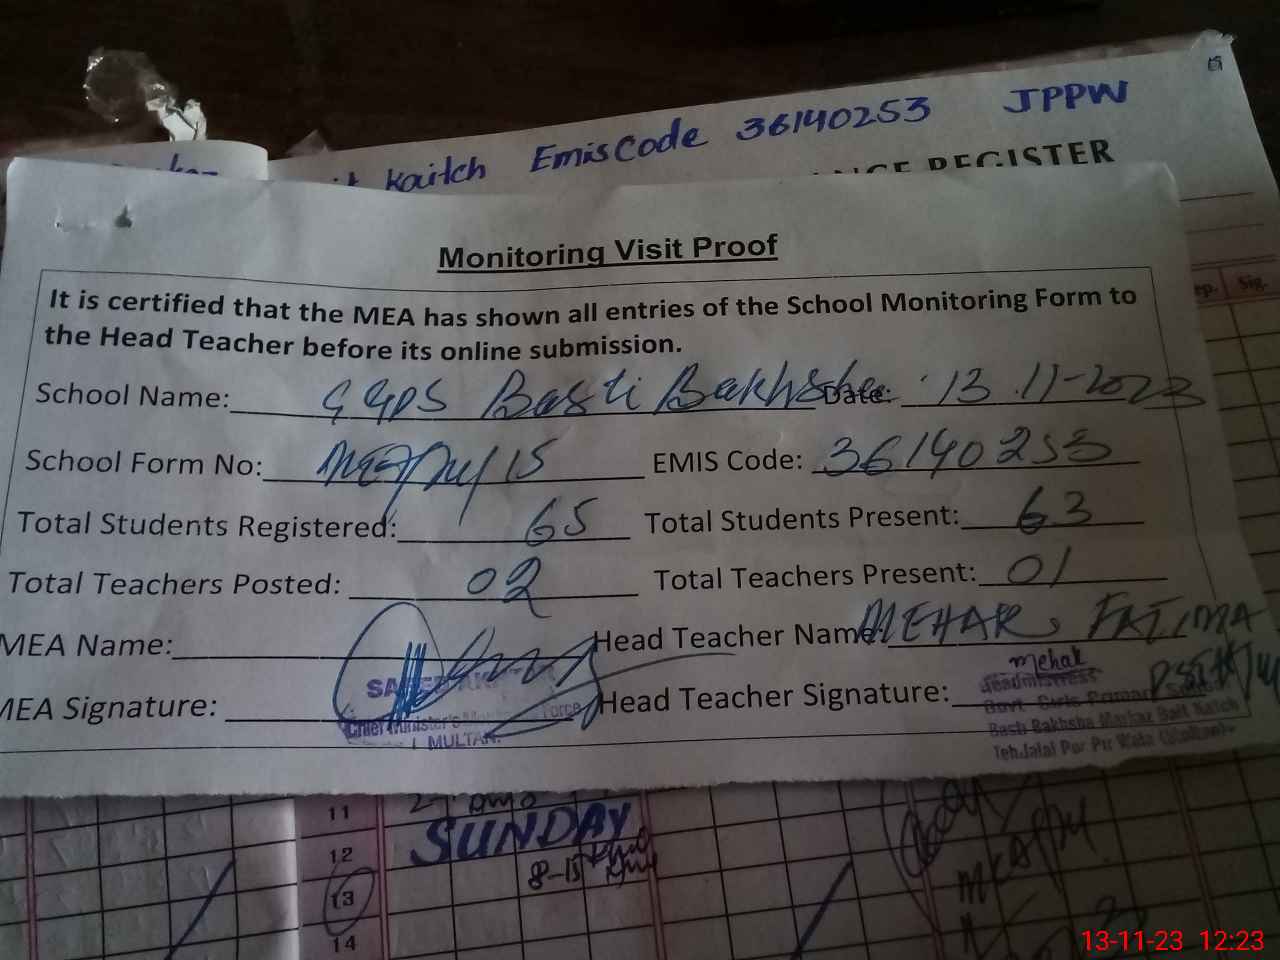 Kaitch EmisCode 36140253 JPPW
REGISTER
Monitoring Visit Proof
It is certified that the MEA has shown all entries of the School Monitoring Form to
the Head Teacher before its online submission.
School Name: GGPS Basti Bakhsha Date: 13-11-2023
School Form No: 15 EMIS Code: 36140253
Total Students Registered: 65 Total Students Present: 63
Total Teachers Posted: 02 Total Teachers Present: 01
MEA Name: Head Teacher Name: MEHAR FATIMA
MEA Signature: Head Teacher Signature:
Mehak
Headmistress
Govt. Girls Primary School
Basti Bakhsha Markaz Bait Kaitch
Teh.Jalal Pur Pir Wala (Multan)
Chief Minister's Force
MULTAN.
ep. Sig.
11
SUNDAY
12
8-15
13
14
13-11-23 12:23